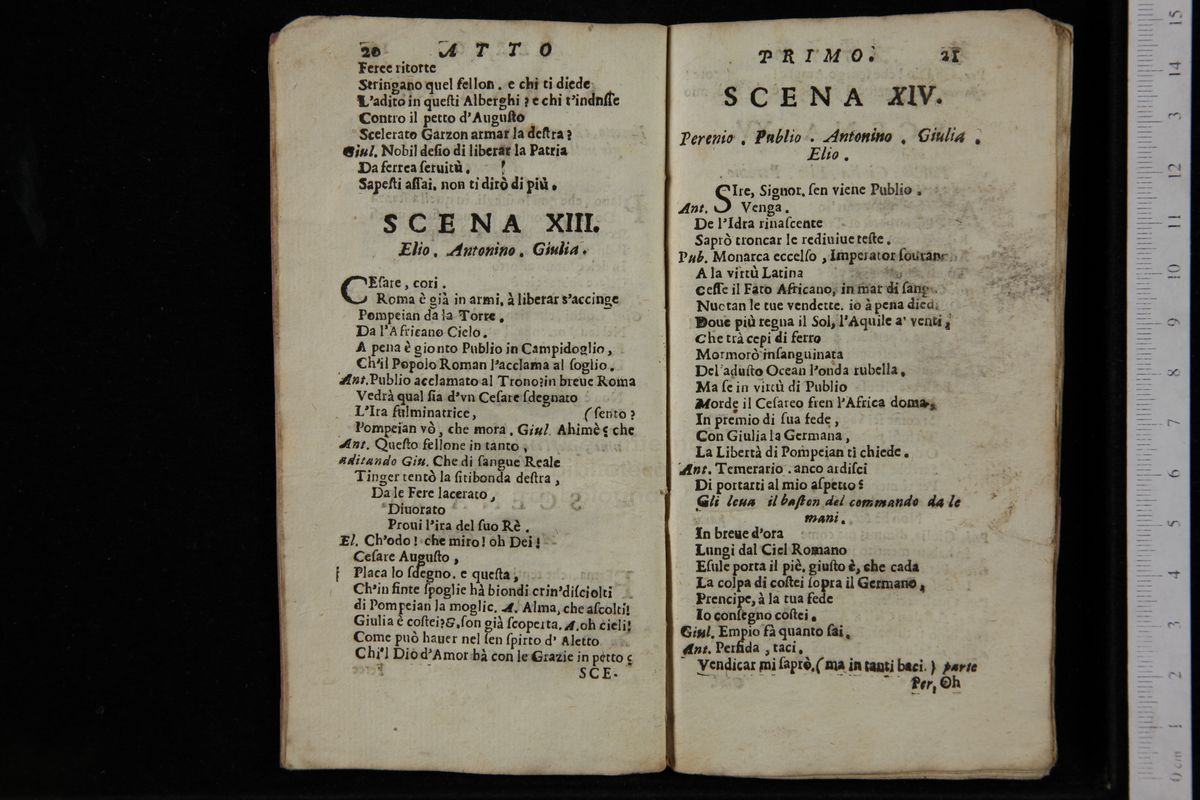 20 ATTO
Feree ritorte
Stringano quel fellon. e chi ti diede
L'adito in questi Alberghi? e chi t'indusse
Contro il petto d'Augusto
Scelerato Garzon armar la destra?
Giul. Nobil desio di liberar la Patria
Da ferrea seruitù.
Sapesti assai. non ti dirò di più.
SCENA XIII.
Elio. Antonino. Giulia.
CEsare, cori.
Roma è già in armi, à liberar s'accinge
Pompeian da la Torre.
Da l'Africano Cielo.
A pena è gionto Publio in Campidoglio,
Ch'il Popolo Roman l'acclama al soglio.
Ant. Publio acclamato al Trono? in breue Roma
Vedrà qual sia d'vn Cesare sdegnato
L'Ira fulminatrice, (sento?
Pompeian vò, che mora. Giul. Ahimè; che
Ant. Questo fellone in tanto,
aditando Giu. Che di sangue Reale
Tinger tentò la sitibonda destra,
Da le Fere lacerato,
Diuorato
Proui l'ira del suo Rè.
El. Ch'odo! che miro! oh Dei!
Cesare Augusto,
Placa lo sdegno. e questa,
Ch'in finte spoglie hà biondi crin' disciolti
di Pompeian la moglie. A. Alma, che ascolti!
Giulia è costei? G. son già scoperta. A. oh cieli!
Come può hauer nel sen spirto d' Aletto
Chi'l Dio d'Amor hà con le Grazie in petto?
SCE-
PRIMO. 21
SCENA XIV.
Perenio. Publio. Antonino. Giulia.
Elio.
SIre, Signor. sen viene Publio.
Ant. Venga.
De l'Idra rinascente
Saprò troncar le rediuiue teste.
Pub. Monarca eccelso, Imperator sourano
A la virtù Latina
Cesse il Fato Africano, in mar di
Nuotan le tue vendette. io à pena
Doue più regna il Sol, l'Aquile a' venti,
Che trà cepi di ferro
Mormorò insanguinata
Del'adusto Ocean l'onda rubella.
Ma se in virtù di Publio
Morde il Cesareo fren l'Africa doma,
In premio di sua fede,
Con Giulia la Germana,
La Libertà di Pompeian ti chiede.
Ant. Temerario. anco ardisci
Di portarti al mio aspetto?
Gli leua il baston del commando da le
mani.
In breue d'ora
Lungi dal Ciel Romano
Esule porta il piè. giusto è, che cada
La colpa di costei sopra il Germano,
Prencipe, à la tua fede
Io consegno costei.
Giul. Empio fà quanto sai.
Ant. Perfida, taci.
Vendicar mi saprò. (ma in tanti baci.) parte
Per. Oh